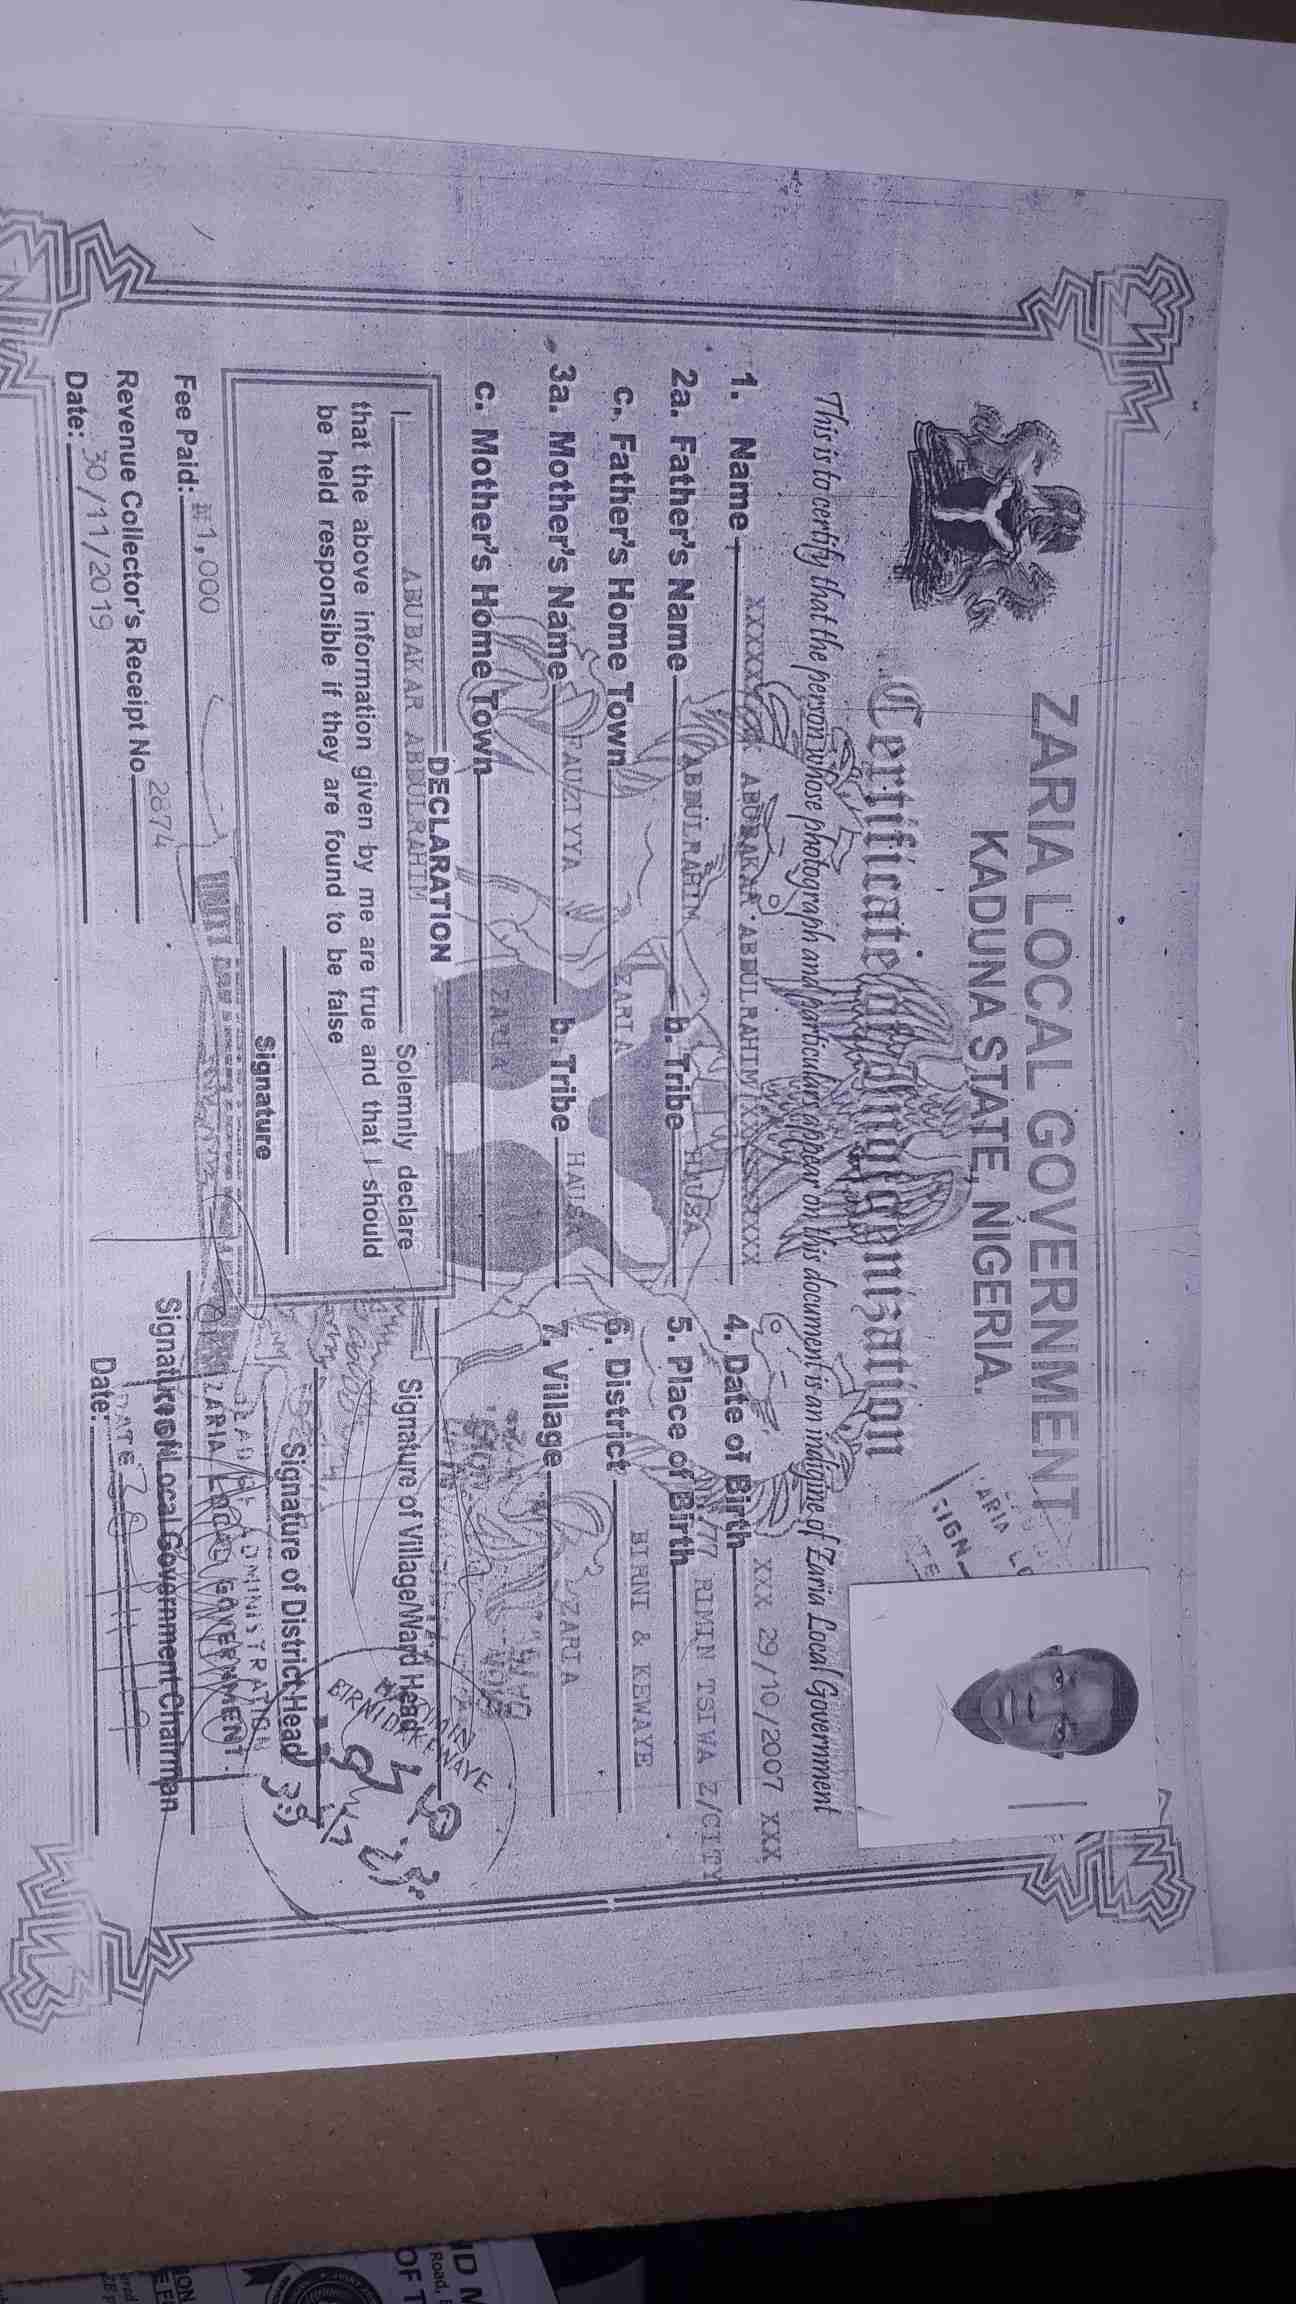 ZARIA LOCAL GOVERNMENT
KADUNA STATE, NIGERIA.
Certificate of Indigenization
This is to certify that the person whose photograph and particulars appear on this document is an indigine of Zaria Local Government
1. Name ABUBAKAR ABDULRAHIM
2a. Father's Name ABDULRAHIM b. Tribe HAUSA
c. Father's Home Town ZARIA
3a. Mother's Name FAUZIYYA b. Tribe HAUSA
c. Mother's Home Town ZARIA
4. Date of Birth XXX 29/10/2007 XXX
5. Place of Birth RIMIN TSIWA Z/CITY
6. District BIRNI & KEWAYE
7. Village ZARIA
DECLARATION
I ABUBAKAR ABDULRAHIM Solemnly declare
that the above information given by me are true and that I should
be held responsible if they are found to be false
Signature
Signature of Village/Ward Head
Signature of District Head
Fee Paid: ₦1,000
Revenue Collector's Receipt No 2874
Date: 30/11/2019
Signature of Local Government Chairman
Date:
ZARIA LOCAL GOVERNMENT
DATE
SIGN